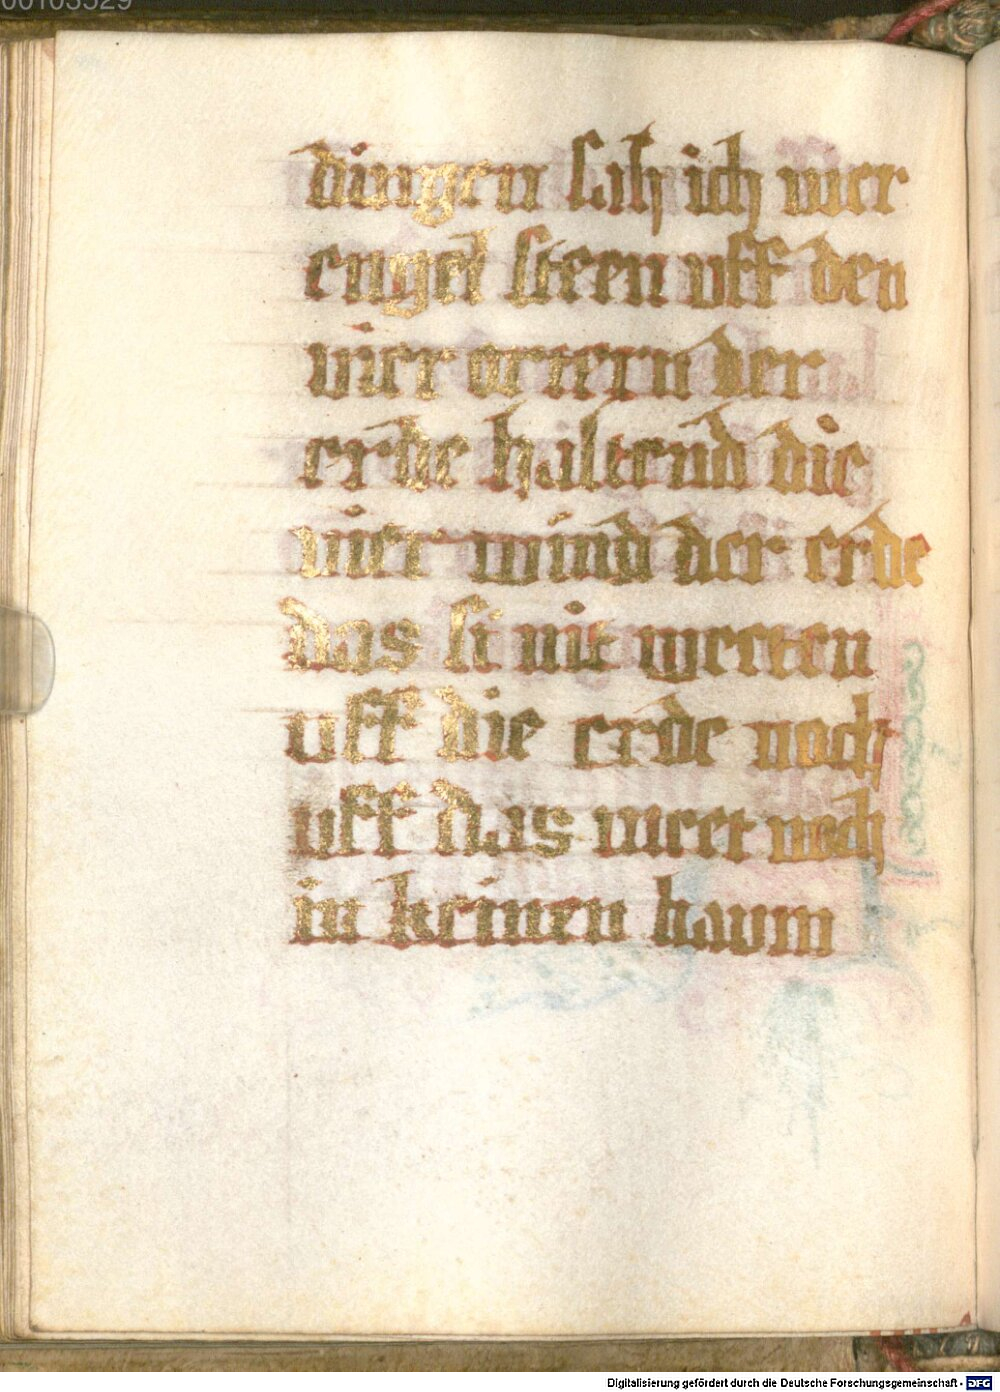 00103529
dingen sah ich vier
engel steen vff den
vier ortern der
erde haltend die
vier wind der erde
das si nit weeten
vff die erde noch
vff das meer noch
in keinen baum
Digitalisierung gefördert durch die Deutsche Forschungsgemeinschaft - DFG